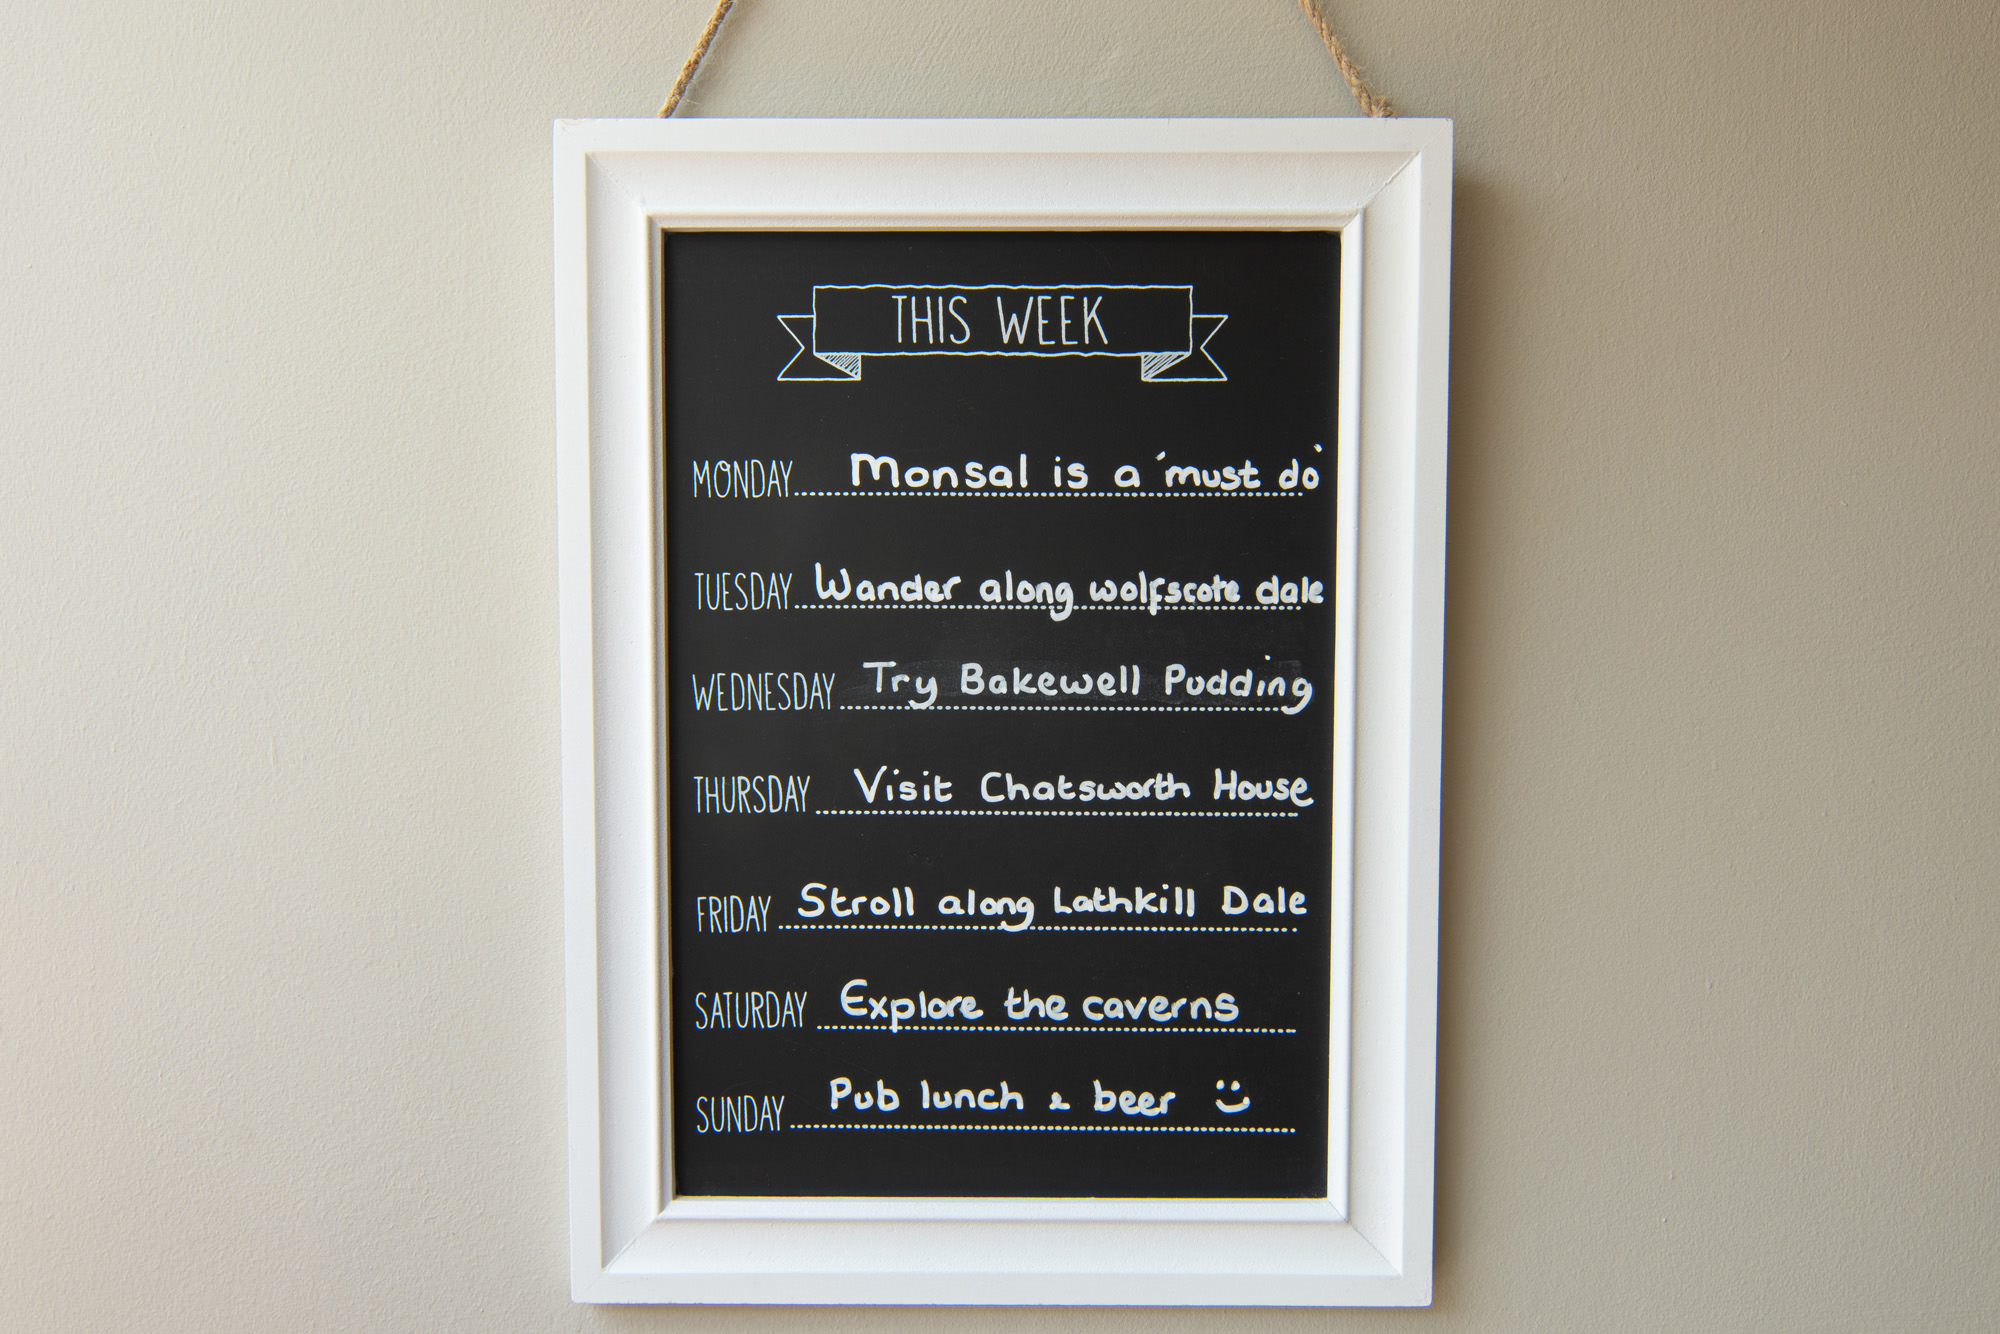 THIS WEEK
MONDAY Monsal is a 'must do'
TUESDAY Wander along wolfscote dale
WEDNESDAY Try Bakewell Pudding
THURSDAY Visit Chatsworth House
FRIDAY Stroll along Lathkill Dale
SATURDAY Explore the caverns
SUNDAY Pub lunch & beer